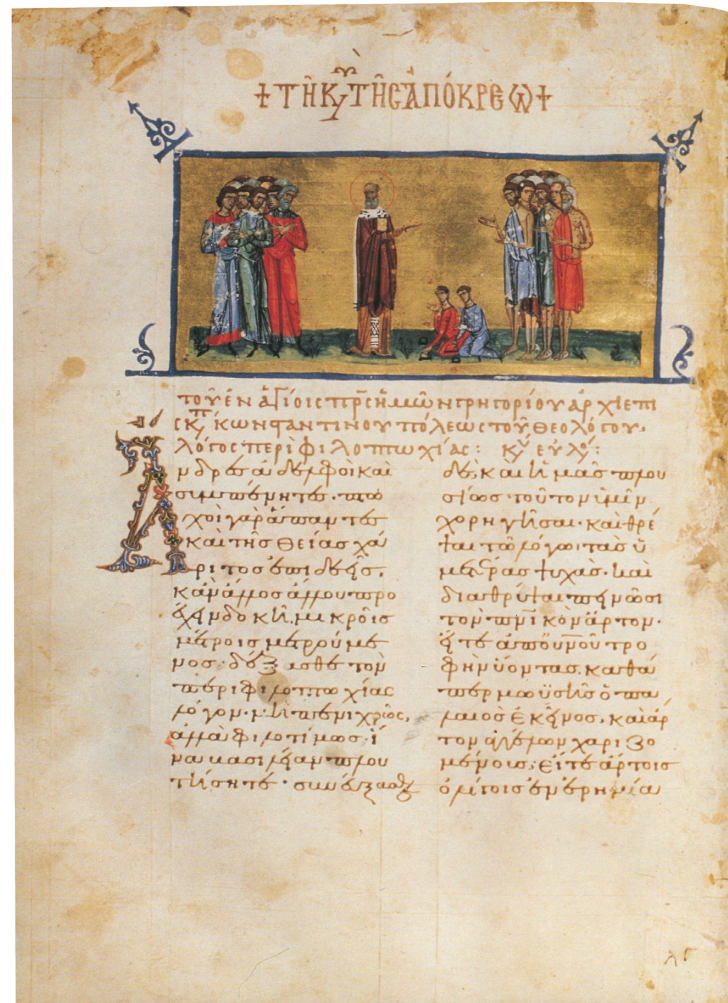 + Τῌ ΚΥ ΤΗΣ ΑΠΟΚΡΕΩ +
τοῦ ἐν ἁγίοις πρς ἡμῶν γρηγορίου ἀρχιεπι
σκπ κωνσταντινουπόλεως τοῦ θεολόγου·
λόγος περὶ φιλοπτωχίας: κε εὐλο:
Ἄνδρες ἀδελφοὶ καὶ
συμπένητες· πτω
χοὶ γὰρ ἅπαντες
καὶ τῆς θείας χά
ριτος ἐπιδεεῖς,
κἂν ἄλλος ἄλλου προ
έχειν δοκῆ, μικροῖς
μέτροις μετρούμε
νος· δέξασθε τὸν
περὶ φιλοπτωχίας
λόγον· μὴ πενιχρῶς,
ἀλλὰ φιλοτίμως· ἵ
να βασιλείαν πλου
τίσητε· συνεύξασθε
δὲ, καὶ ἡμᾶς πλου
σίως τοῦτον ὑμῖν
χορηγῆσαι· καὶ θρέ
ψαι τῶ λόγω, τὰς ὑ
μετέρας ψυχάς· καὶ
διαθρύψαι πεινῶσι
τὸν πνικὸν ἄρτον·
εἴτε ἀπ' οὐνοῦ τρο
φὴν ὕοντας, καθά
περ μωϋσῆς ὁ πα
λαιὸς ἐκεῖνος, καὶ ἄρ
τον ἀγγέλων χαριζο
μένοις· εἴτε ἄρτοις
ὀλίγοις ἐν ἐρημία